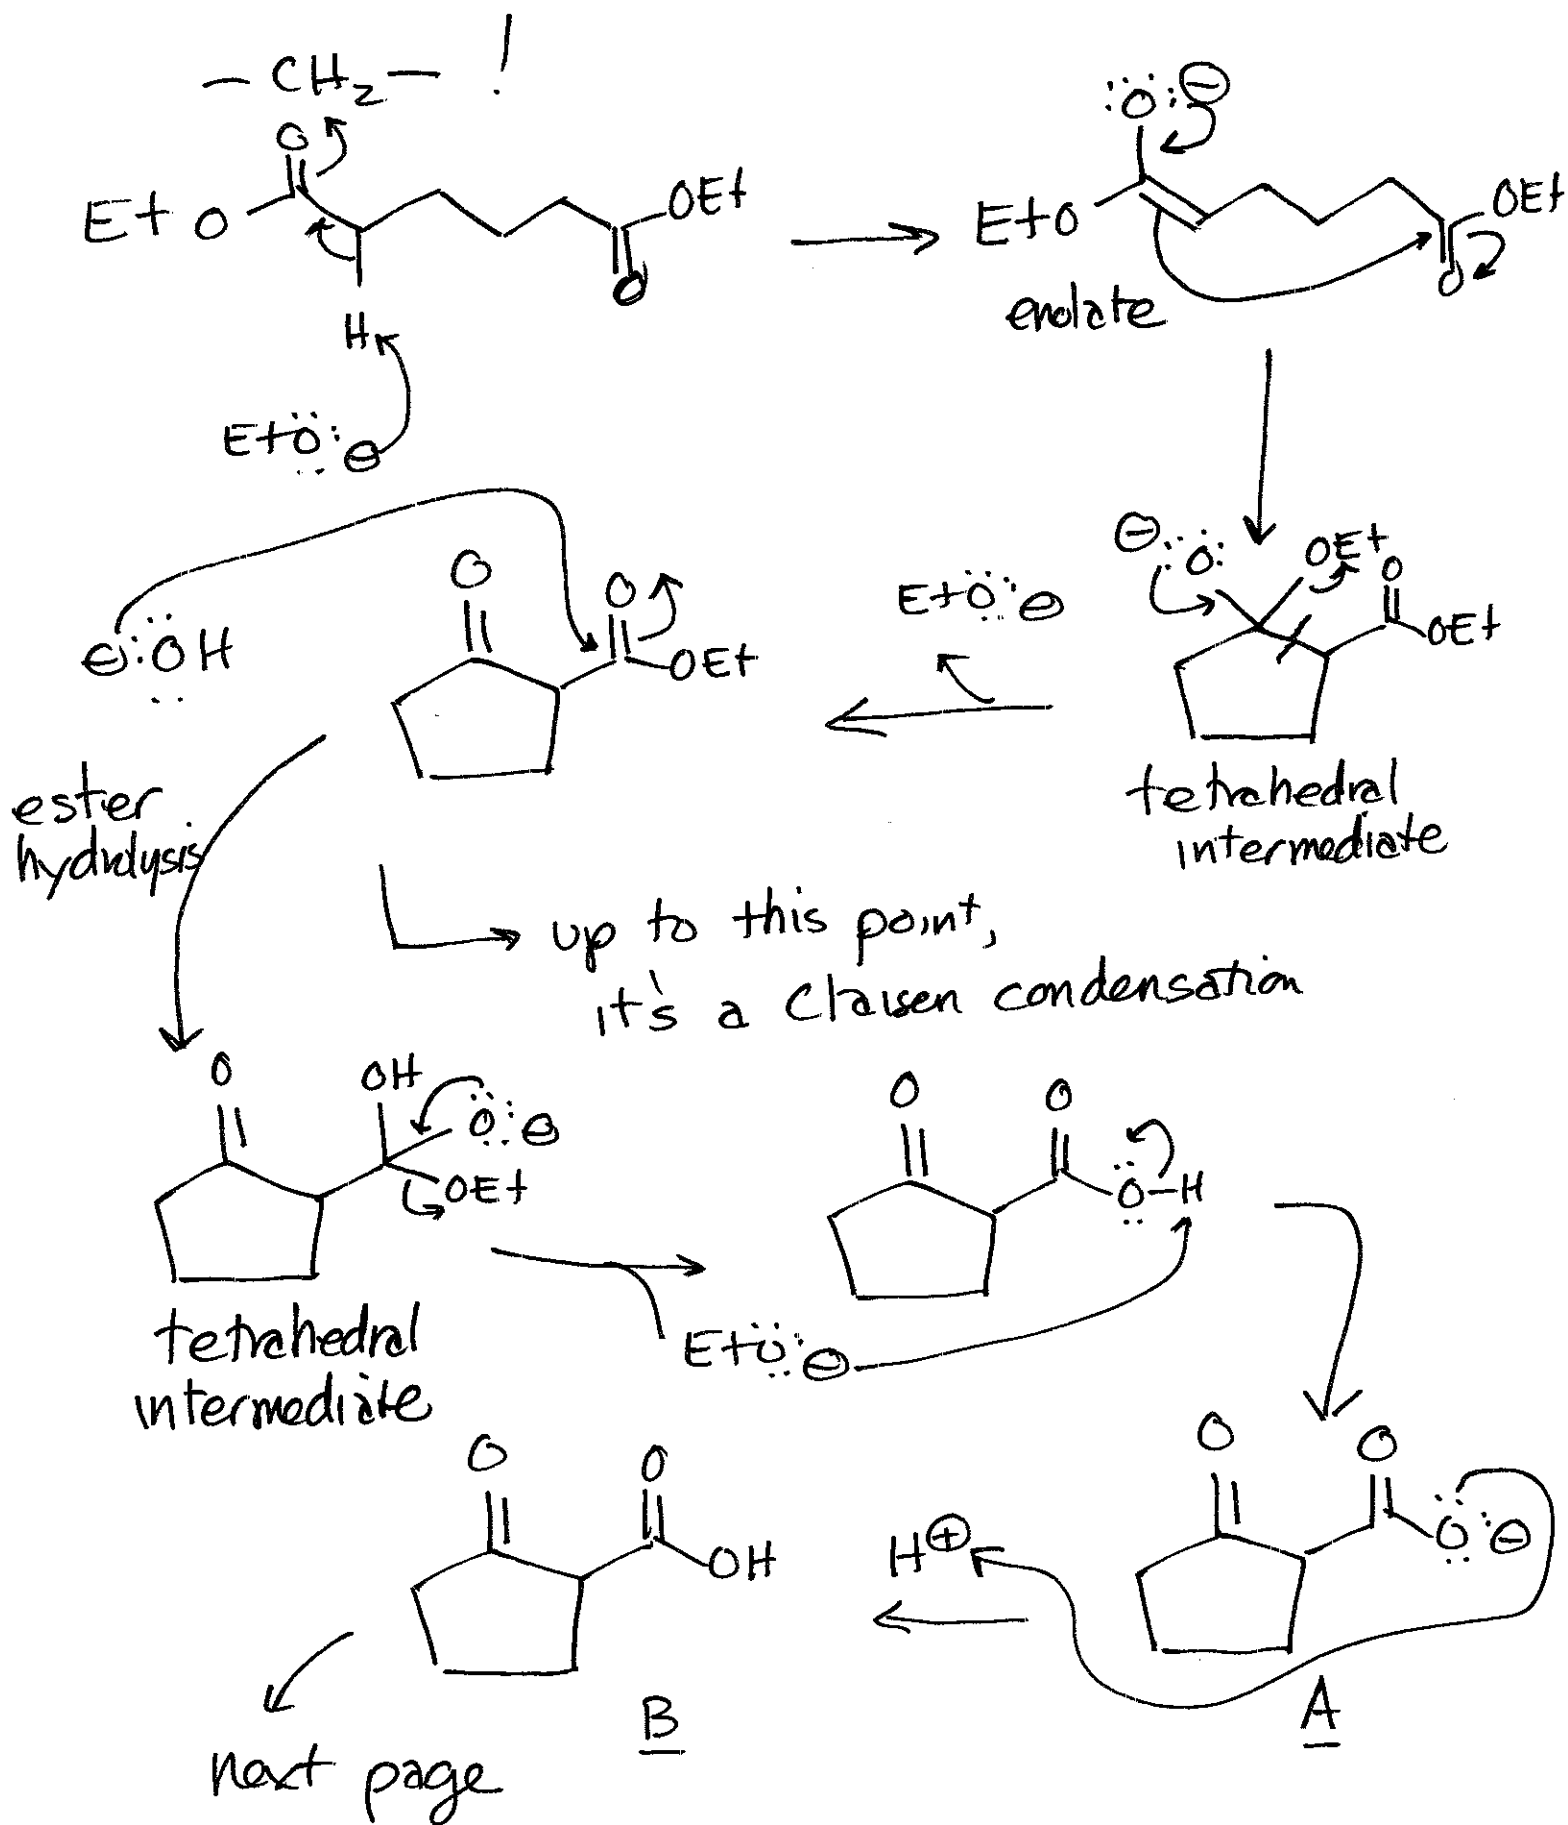 - CH2 - !
O
EtO
OEt
O
H
EtO:⊖
:O:⊖
EtO
OEt
O
enolate
⊖:O:
OEt
O
OEt
tetrahedral
intermediate
EtO:⊖
⊖:OH
O
O
OEt
ester
hydrolysis
up to this point,
it's a Claisen condensation
O
OH
O:⊖
OEt
tetrahedral
intermediate
EtO:⊖
O
O
O-H
O
O
O:⊖
A
H⊕
O
O
OH
B
next page